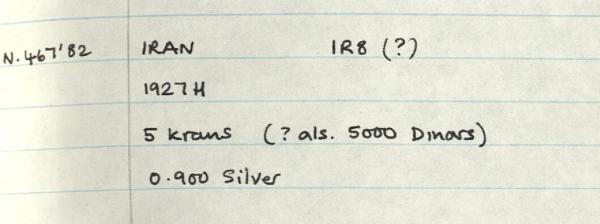 N.467'82 IRAN IR8 (?)
1927H
5 krans (? als. 5000 Dinars)
0.900 Silver